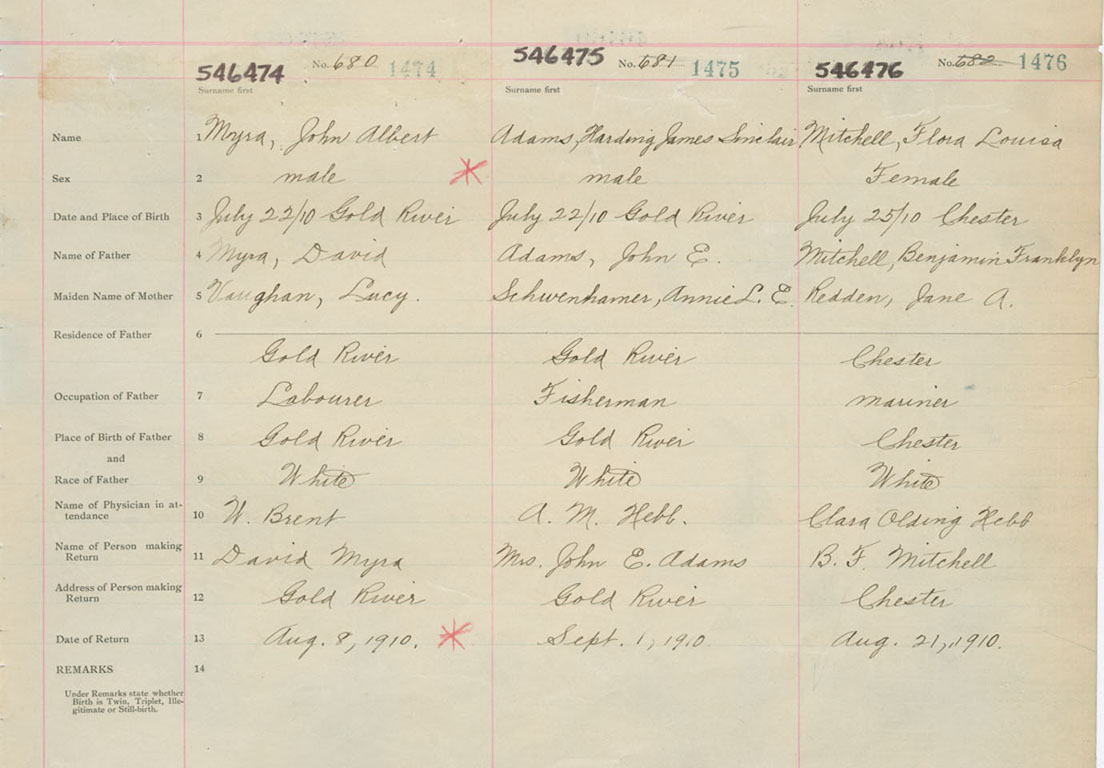 546474 No. 680 1474 546475 No. 681 1475 546476 No. 682 1476
Surname first Surname first Surname first
Name 1 Myra, John Albert Adams, Harding James Sinclair Mitchell, Flora Louisa
Sex 2 male male Female
Date and Place of Birth 3 July 22/10 Gold River July 22/10 Gold River July 25/10 Chester
Name of Father 4 Myra, David Adams, John E. Mitchell, Benjamin Franklyn
Maiden Name of Mother 5 Vaughan, Lucy. Schwenhamer, Annie L. E. Redden, Jane A.
Residence of Father 6
Gold River Gold River Chester
Occupation of Father 7 Labourer Fisherman mariner
Place of Birth of Father 8 Gold River Gold River Chester
and
Race of Father 9 White White White
Name of Physician in at-
tendance 10 W. Brent A. M. Hebb. Clara Olding Hebb
Name of Person making
Return 11 David Myra Mrs. John E. Adams B. F. Mitchell
Address of Person making
Return 12 Gold River Gold River Chester
Date of Return 13 Aug. 8, 1910. Sept. 1, 1910. Aug. 21, 1910.
REMARKS 14
Under Remarks state whether
Birth is Twin, Triplet, Ille-
gitimate or Still-birth.